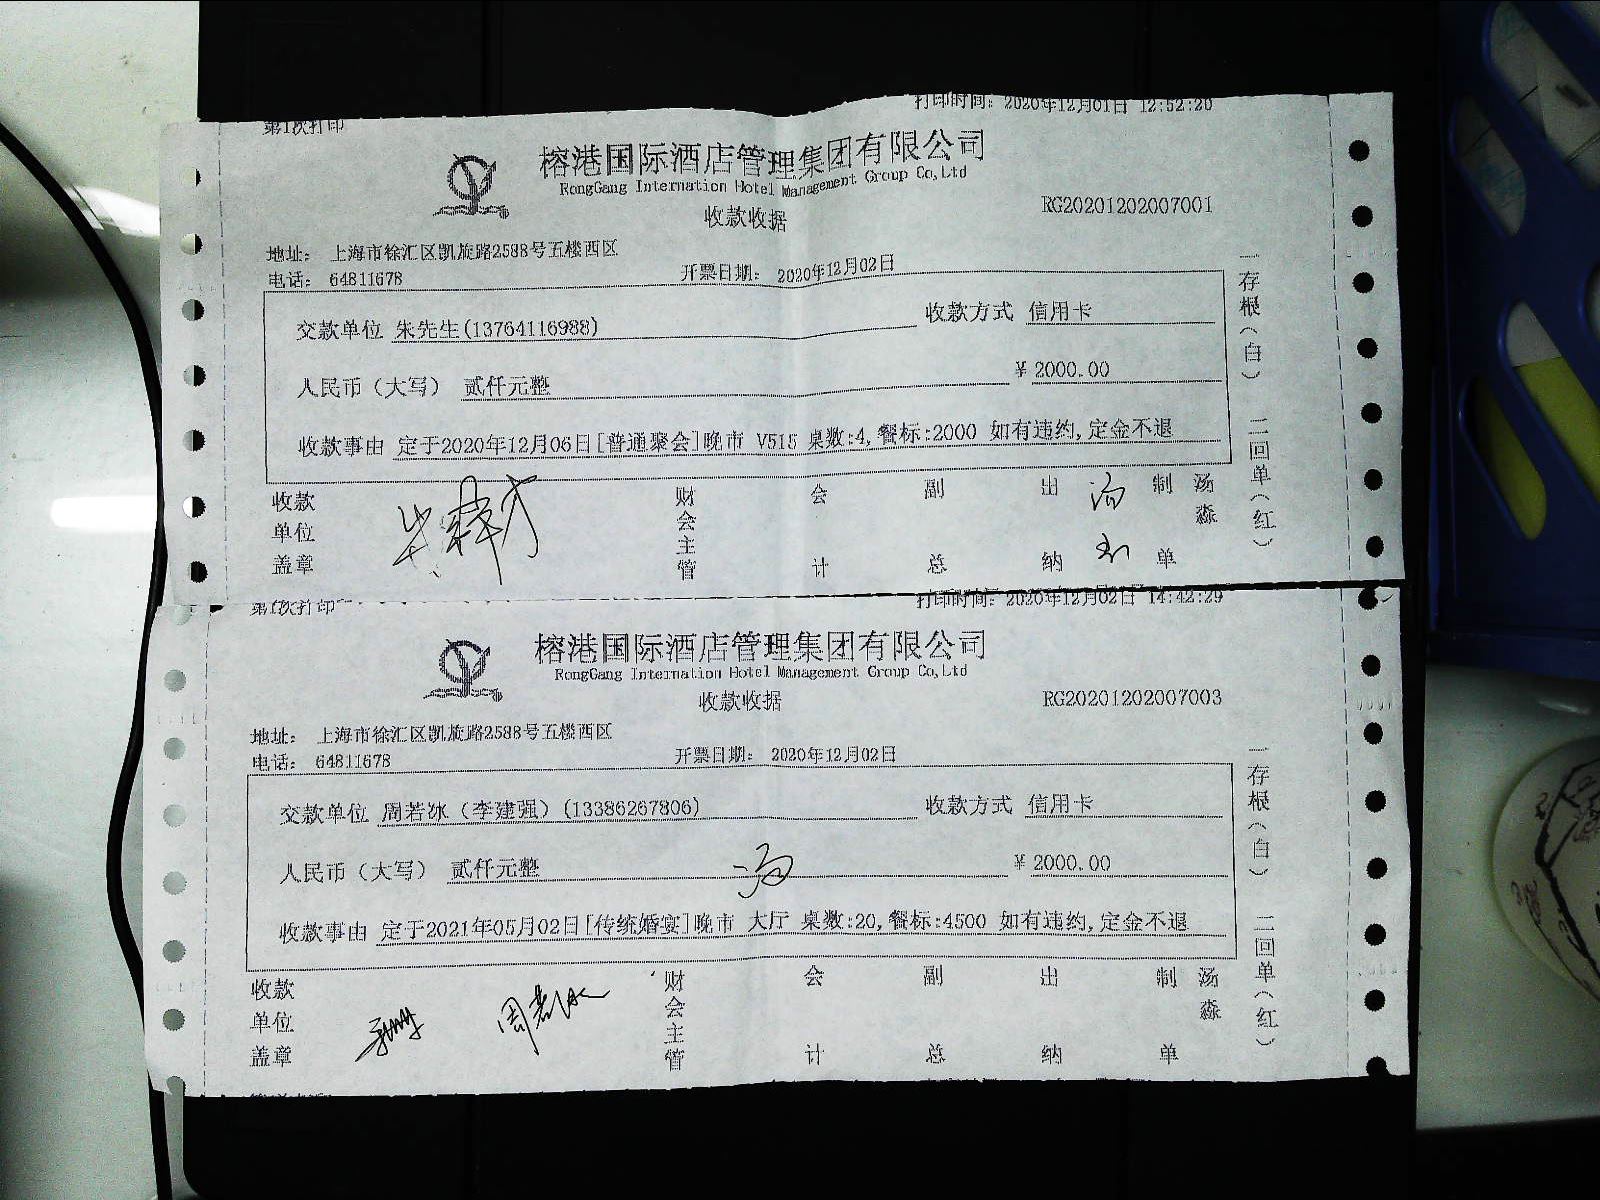 第1次打印
打印时间: 2020年12月01日 12:52:20
榕港国际酒店管理集团有限公司
RongGang Internation Hotel Management Group Co,Ltd
收款收据
RG20201202007001
地址: 上海市徐汇区凯旋路2588号五楼西区
电话: 64811678
开票日期: 2020年12月02日
交款单位 朱先生(13764116988)
收款方式 信用卡
人民币(大写) 贰仟元整
¥ 2000.00
收款事由 定于2020年12月06日[普通聚会]晚市 V515 桌数:4,餐标:2000 如有违约,定金不退
收款单位盖章
财会主管
会计
副总
出纳
制单
汤淼
一存根(白) 二回单(红)
第1次打印
打印时间: 2020年12月02日 14:42:29
榕港国际酒店管理集团有限公司
RongGang Internation Hotel Management Group Co,Ltd
收款收据
RG20201202007003
地址: 上海市徐汇区凯旋路2588号五楼西区
电话: 64811678
开票日期: 2020年12月02日
交款单位 周若冰(李建强)(13386267806)
收款方式 信用卡
人民币(大写) 贰仟元整
¥ 2000.00
收款事由 定于2021年05月02日[传统婚宴]晚市 大厅 桌数:20,餐标:4500 如有违约,定金不退
收款单位盖章
周若冰
财会主管
会计
副总
出纳
制单
汤淼
一存根(白) 二回单(红)